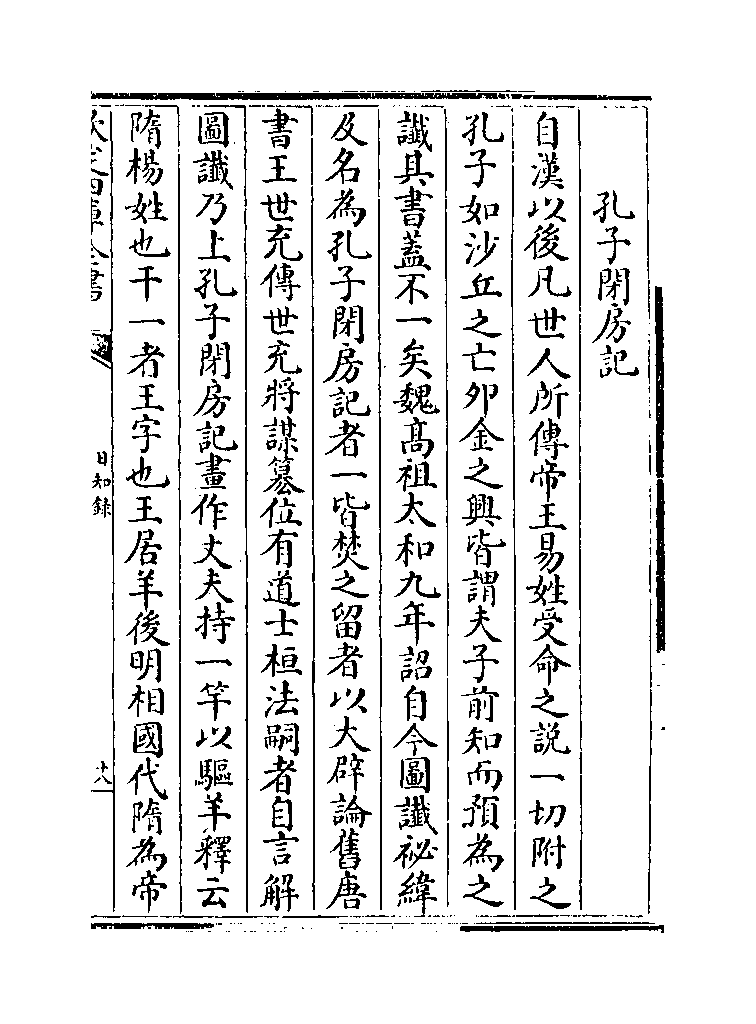 孔子閉房記
自漢以後凡世人所傳帝王易姓受命之説一切附之
孔子如沙丘之亡夘金之興皆謂夫子前知而預為之
讖其書蓋不一矣魏髙祖太和九年詔自今圖讖祕緯
及名為孔子閉房記者一皆焚之留者以大辟論舊唐
書王世充傳世充將謀簒位有道士桓法嗣者自言解
圖讖乃上孔子閉房記畫作丈夫持一竿以驅羊釋云
隋楊姓也干一者王字也王居羊後明相國代隋為帝
欽定四庫全書
日知錄
十八